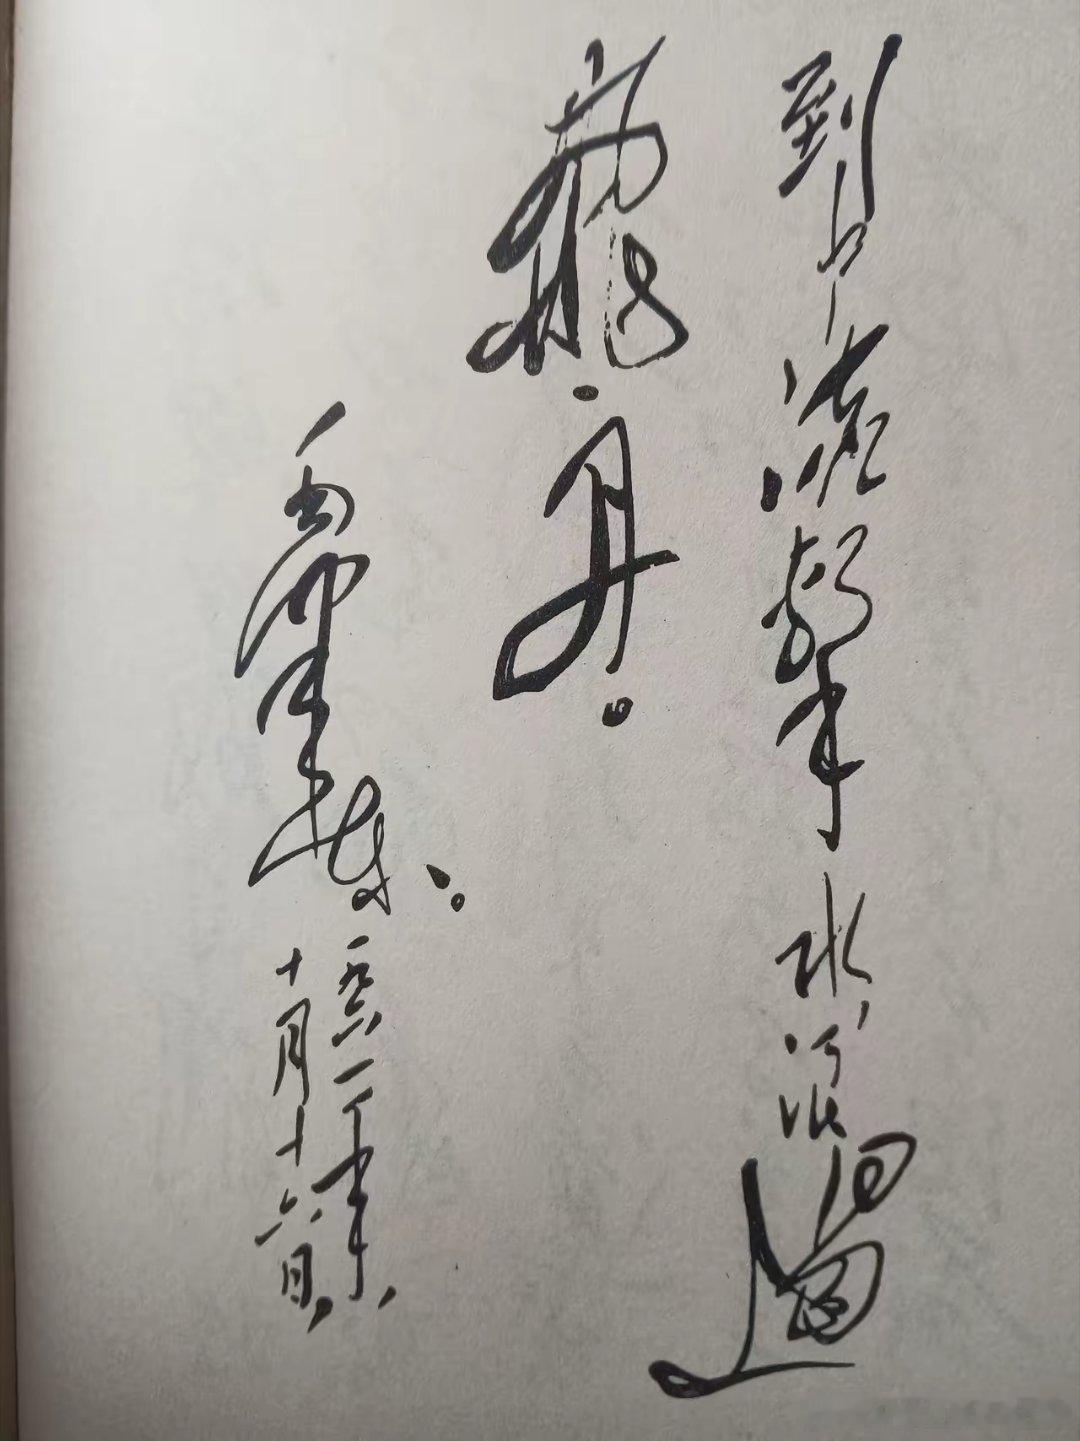 到中流擊水，浪遏
飛舟。
毛澤東。
一九六一年，
十月十六日，